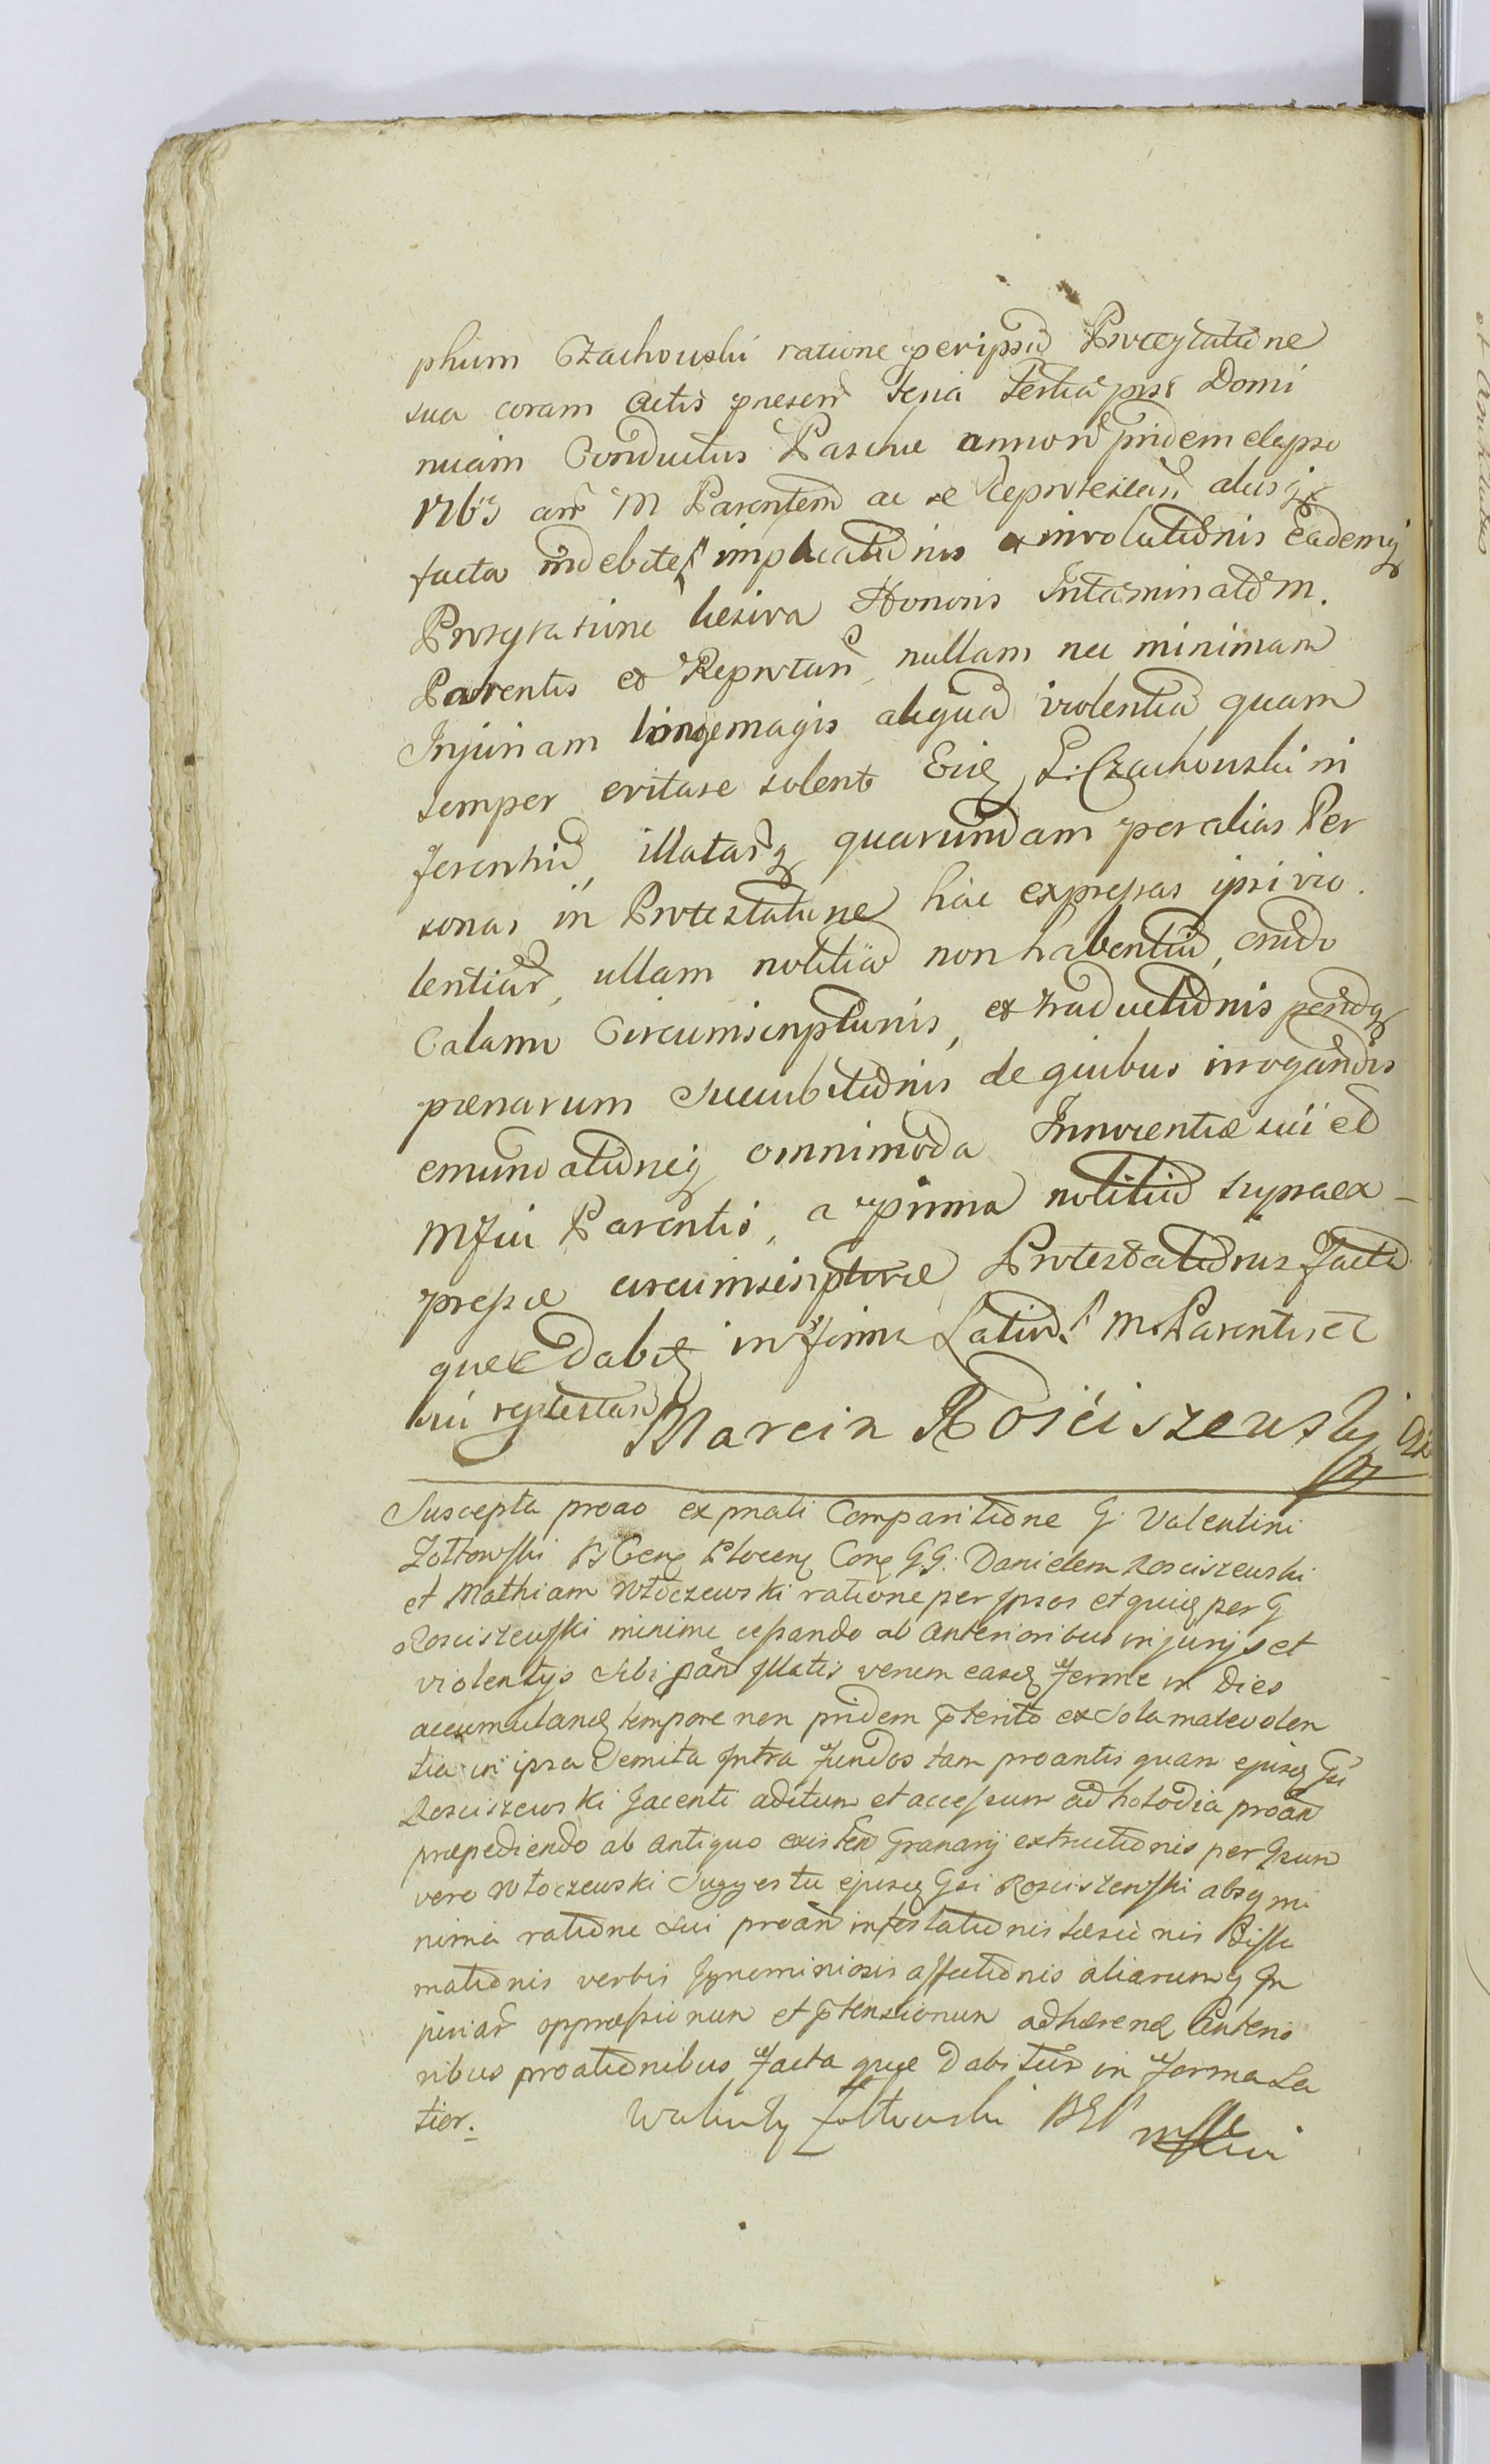 phum Czachowski ratione per ipsũ Protestatiõne
sua coram Actis presen feria tertia post Domi
nicam Conductus Paschæ annorũ pridem elapso
1763 anñ M Parentem ac se Reprotestañ aliisqz
facta indebitæ implicatiõnis et involutiõnis Eademqz
Protestatione læsiva Honoris Intaminatõ M.
Parentis et Reprotañ, nullam nec minimam
Injuriam longemagis aliquã violentiã quam
semper evitare solent Eidẽ G. Czachowski in
ferentiũ, illatarũqz quarundam per alias Per
sonas in Protestatione hac expressas ipsi vio
lentiarũ, ullam notitiã non habentiũ, crudo
Calamo Circumscriptionis, et traductiõnis perindeqz
pænarum succubitiõnis de quibus irrogandis
emundatiõneqz omnimoda Innocentiæ sui et
Mfici Parentis, a prima notitiã supraex-
pressæ circumscriptivæ Protestatiõnis Facta
quæ Dabitz in Forma Latiori M. Parentis et
sui reprotestañ
Marcin Rościszewski
Suscepta proao ex prnali Comparitiõne G. Valentini
Zołtowski B Cenz Plocenz Conz GG. Danielem Rosciszewski
et Mathiam Włoczewski ratione per Ipsos et quidẽ per G
Rosciszewski minime cessando ab anterioribus injurijs et
violentijs Sibi proañ Illatis verum easdẽ Ferme in Dies
accumulandẽ tempore non pridem pterito ex Sola malevolen
tia in ipsa Semita Intra Fundos tam proantis quam ejusdẽ Gsi
Rosciszewski Jacenti aditum et accessum ad hołodia proañ
præpediendo ab antiquo existeñ Granarij extructiõnis per Gsum
vero Włoczewski Suggestu ejusdẽ Gsi Rosciszewski absqz mi
nima ratiõne Sui proañ infestatiõnis læsiõnis Diffa
matiõnis verbis Ignominiosis affectiõnis aliarumqz In
juriarũ oppressionum et ptensionum adhærendẽ Anterio
ribus proatiõnibus Facta quæ Dabitur in Forma La
tior.
Walenty Zołtowski BCP mpria